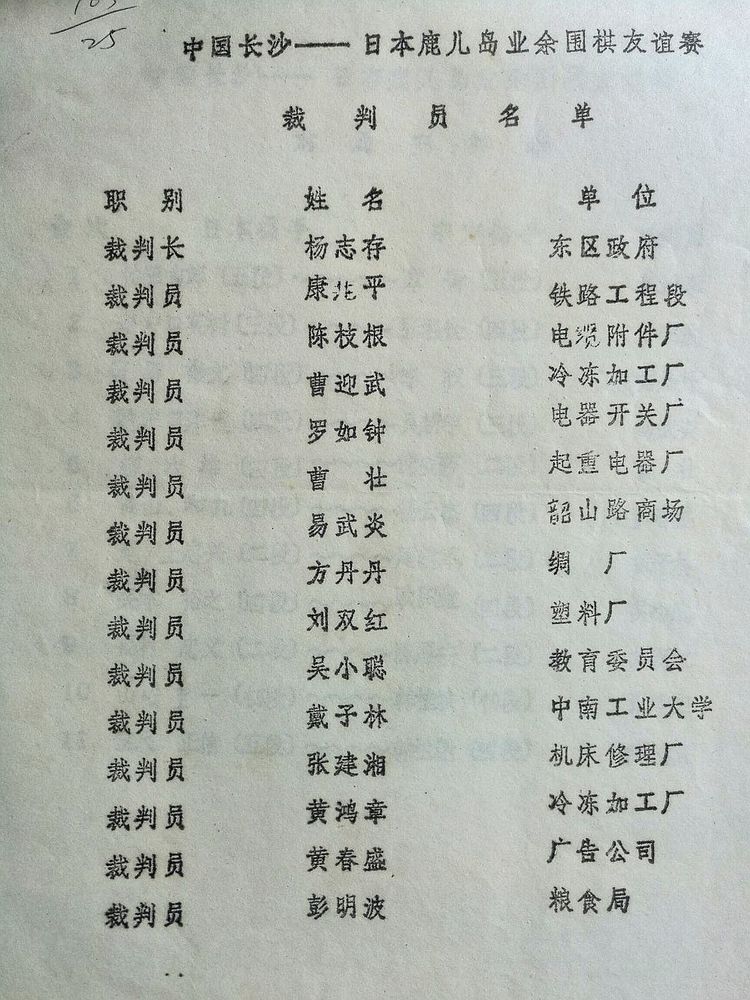 25
中国长沙——日本鹿儿岛业余围棋友谊赛
裁判员名单
职别 姓名 单位
裁判长 杨志存 东区政府
裁判员 康兆平 铁路工程段
裁判员 陈枝根 电缆附件厂
裁判员 曹迎武 冷冻加工厂
裁判员 罗如钟 电器开关厂
裁判员 曹壮 起重电器厂
裁判员 易武炎 韶山路商场
裁判员 方丹丹 绸厂
裁判员 刘双红 塑料厂
裁判员 吴小聪 教育委员会
裁判员 戴子林 中南工业大学
裁判员 张建湘 机床修理厂
裁判员 黄鸿章 冷冻加工厂
裁判员 黄春盛 广告公司
裁判员 彭明波 粮食局